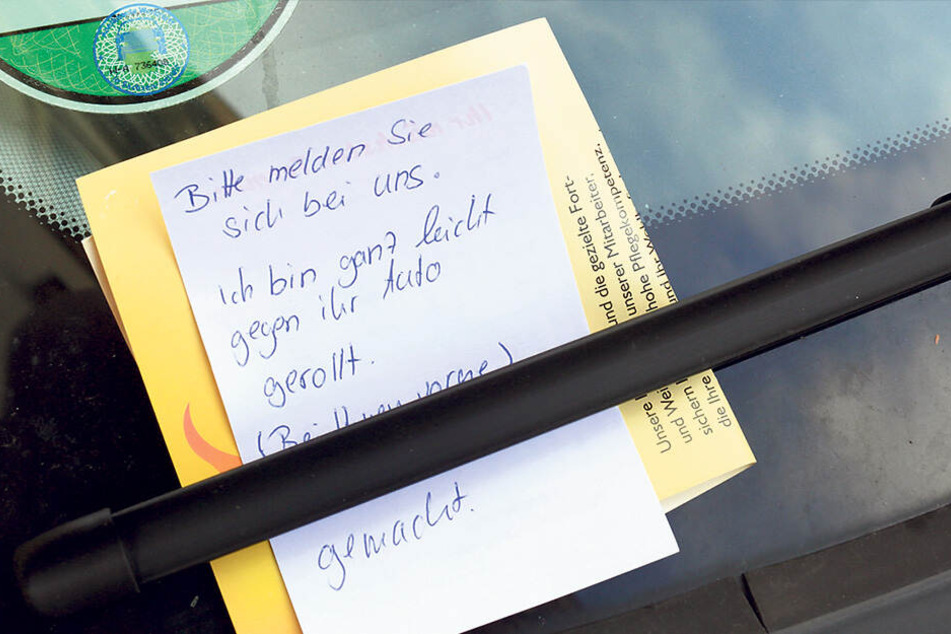 Bitte melden Sie
sich bei uns.
ich bin ganz leicht
gegen ihr Auto
gerollt.
(Bei vorne)
gemacht.
Unsere und die gezielte Fort-
und Wei unserer Mitarbeiter,
sichern hohe Pflegekompetenz.
die Ihre und Ihr